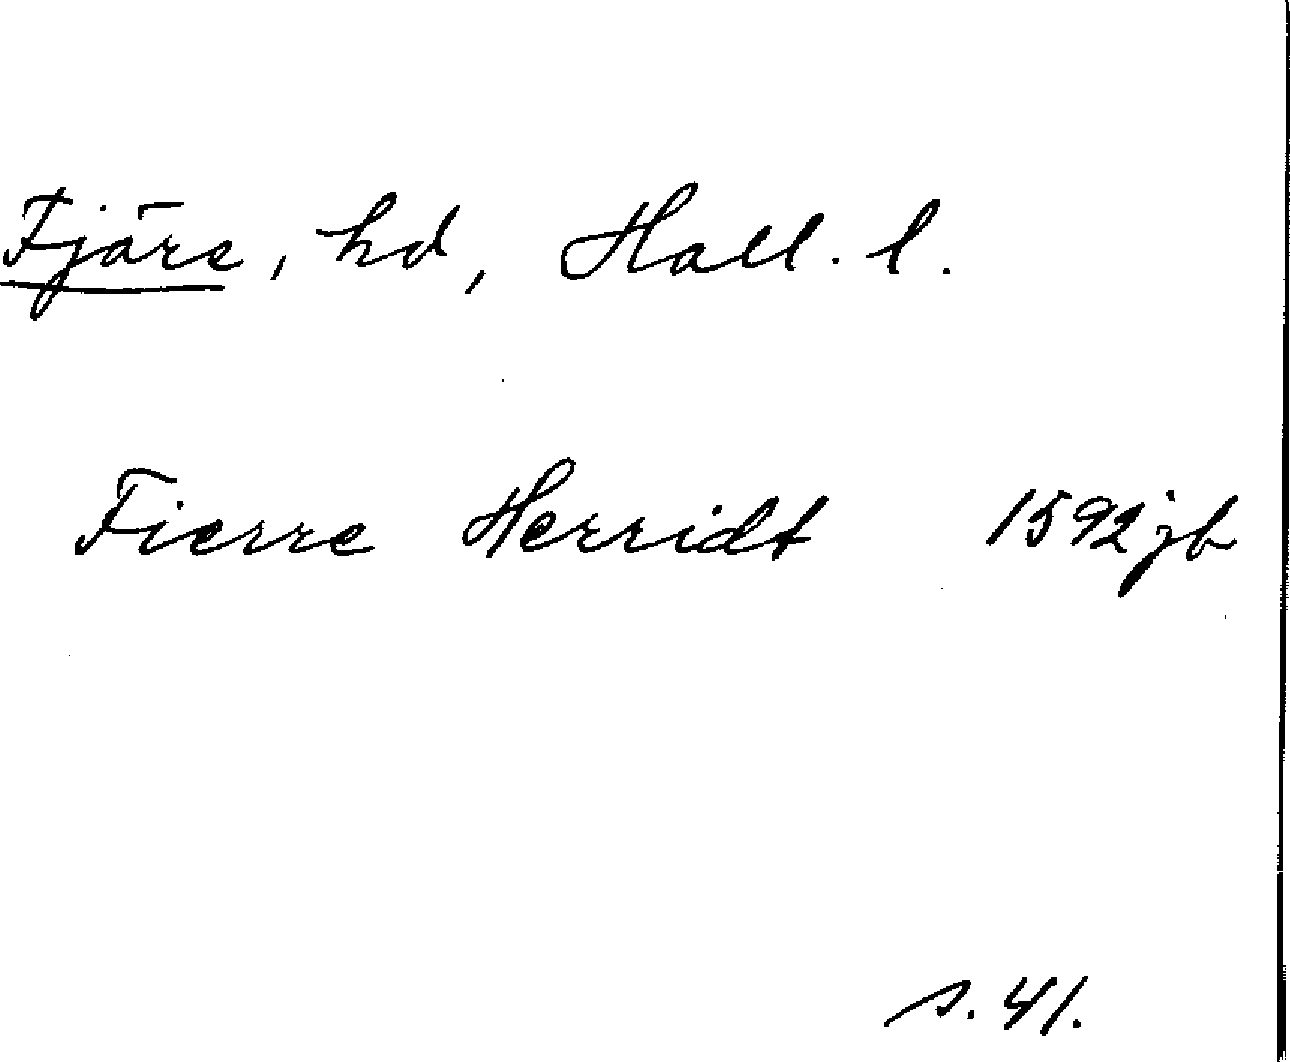 Fjäre, hd, Hall. l.
Fierre Herridt 1592 jb
s. 41.